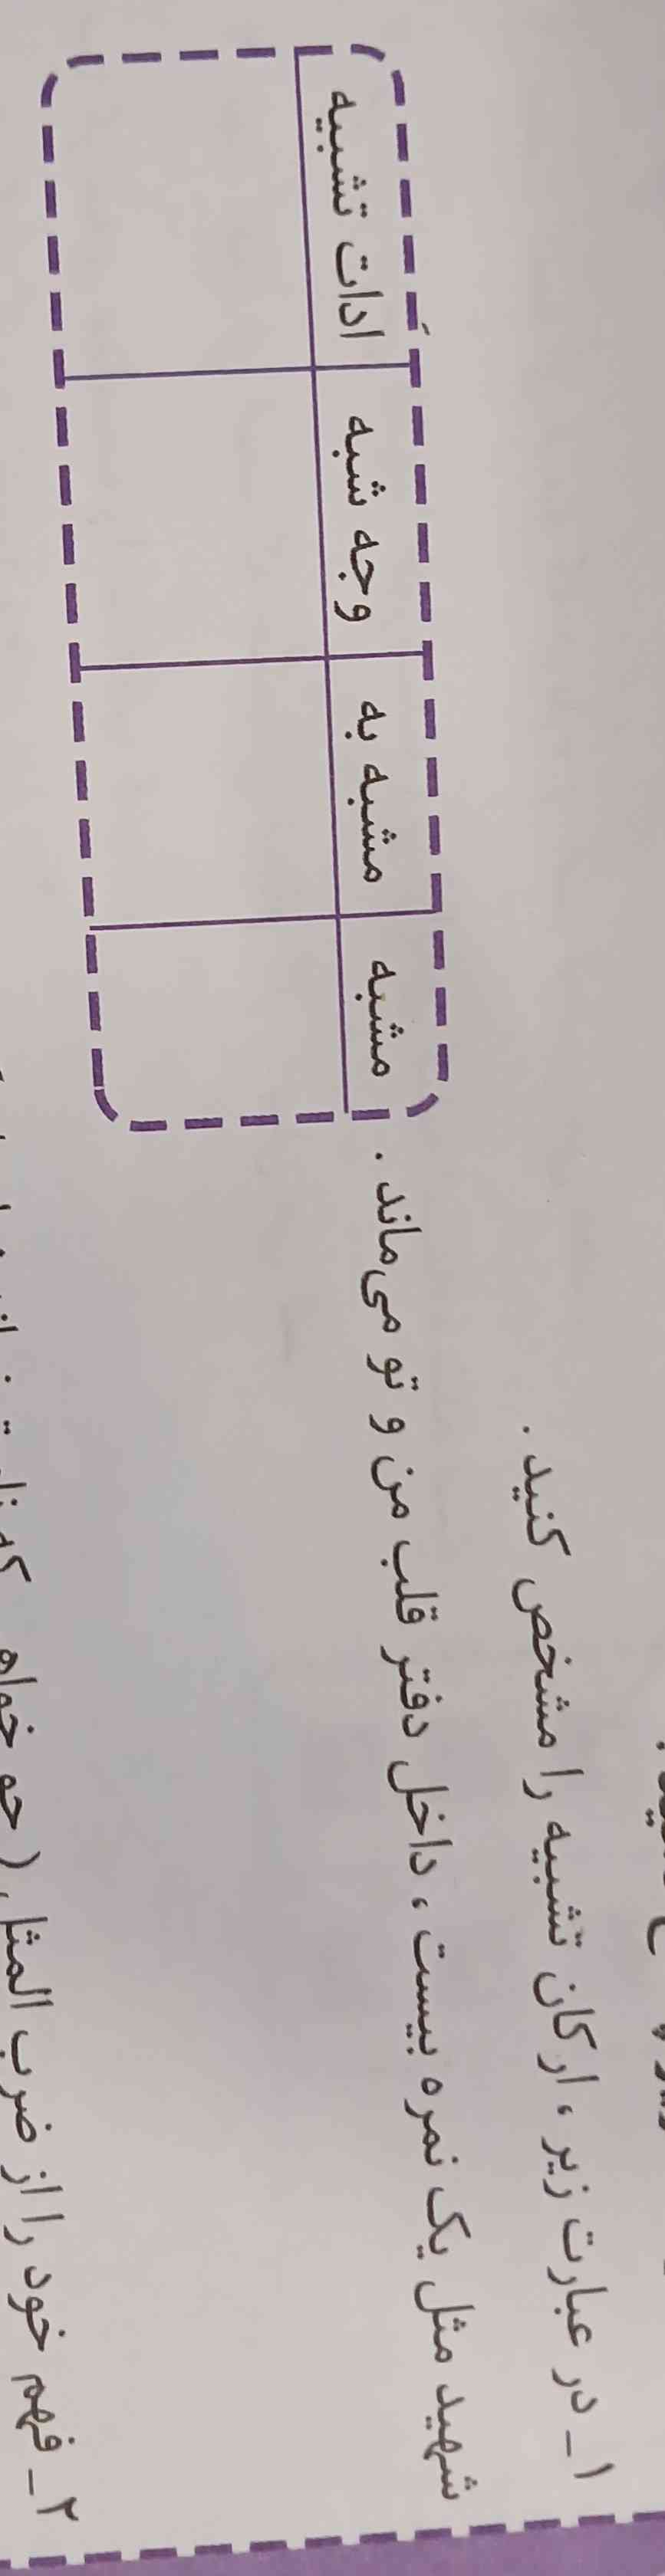 ۱ـ در عبارت زیر، ارکان تشبیه را مشخص کنید.
شهید مثل یک نمره بیست، داخل دفتر قلب من و تو می‌ماند.
مشبه مشبه به وجه شبه ادات تشبیه
۲ـ فهم خود را از ضرب المثل